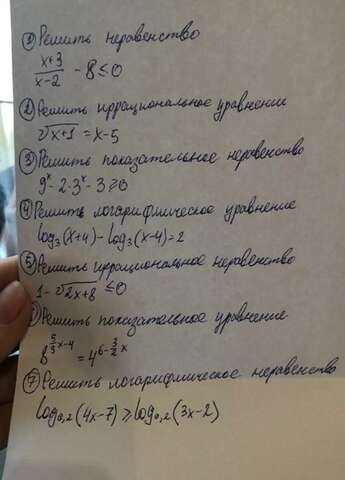 ① Решить неравенство
(x+3)/(x-2) - 8 ≤ 0
② Решить иррациональное уравнение
√(x+1) = x-5
③ Решить показательное неравенство
9^x - 2·3^x - 3 ≥ 0
④ Решить логарифмическое уравнение
log₃(x+4) - log₃(x-4) = 2
⑤ Решить иррациональное неравенство
1 - √(2x+8) ≤ 0
Решить показательное уравнение
8^(5/3 x-4) = 4^(6-3/2 x)
⑦ Решить логарифмическое неравенство
log₀,₂(4x-7) ≥ log₀,₂(3x-2)